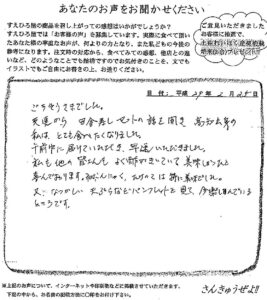 あなたのお声をお聞かせください
すえひろ屋の商品を召し上がっての感想はいかがでしょうか?
すえひろ屋では「お客様の声」を募集しています。実際に食べて頂い
たあなた様の率直なお声が、何よりの力となり、また私どもの今後の
参考になります。注文時のお応対から、食べてみての感想、他店との違
いなど、どのようなことでも結構ですのでお気付きのことを、文でも
イラストでもご自由にお書きの上、お送りください。
ご意見いただきました
お客様に抽選で、
日付:平成 29年 2月 28日
ごちそうさまでした。
友達から 田舎寿しセットの話を聞き 高知出身の
私は とても食べたくなりました。
午前中に届けていただき、早速いただきました。
私も他の皆さんも よく酢がきいていて 美味しかったと
喜んでおります。
特に美味でした。
又、なつかしい 
ところです。
※上記のお声について、インターネットや印刷物などに掲載させていただきます。
下記の中から、お名前の記載方法に〇印をお付け下さい。
さんきゅうぜよ!!